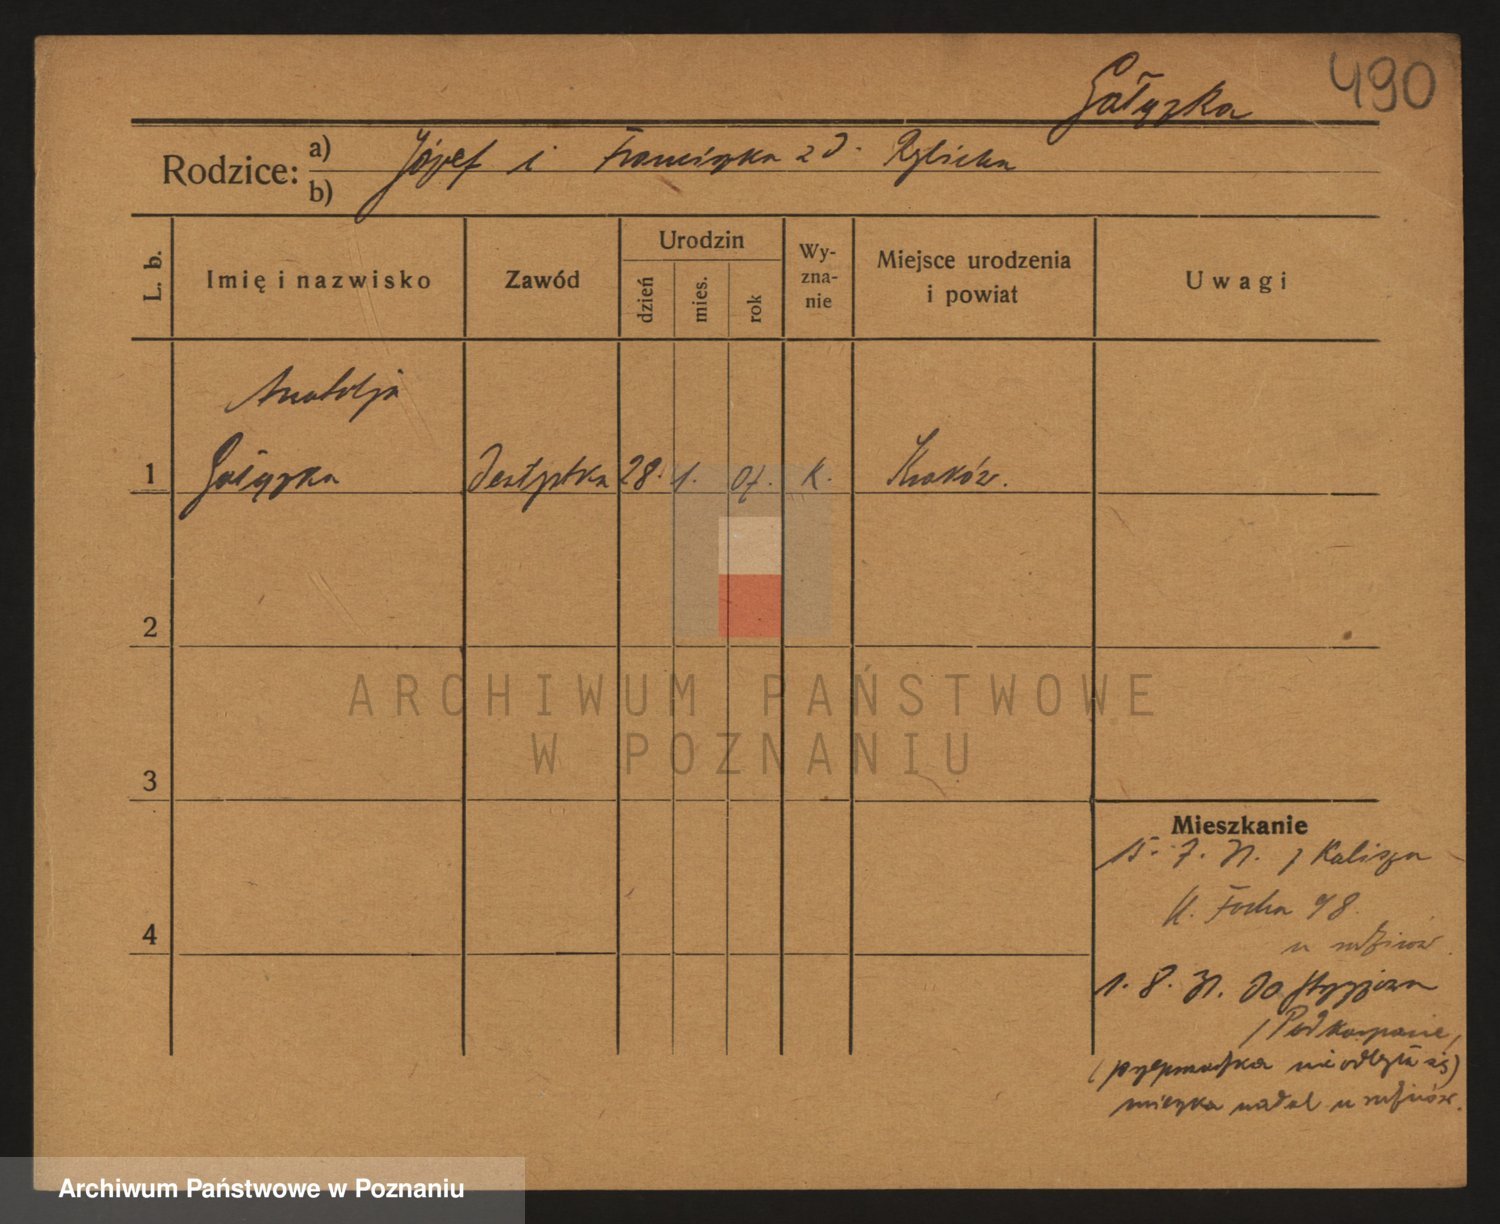 490
Gałęzka
Rodzice: a) b) Józef i Franciszka z d. Rylicka
L. b.
Imię i nazwisko
Zawód
Urodzin
dzień
mies.
rok
Wy-
zna-
nie
Miejsce urodzenia
i powiat
Uwagi
Anatolja
1 Gałęzka Dentystka 28. 1. 07. K. Kraków.
2
3
4
ARCHIWUM PAŃSTWOWE
W POZNANIU
Mieszkanie
15. 7. 31. z Kalisza
Ul. Focha 48
u rodziców.
1. 8. 31. do
/ Podkarpacie /
(przeprowadzka nie odbyła się)
mieszka nadal u rodziców.
Archiwum Państwowe w Poznaniu